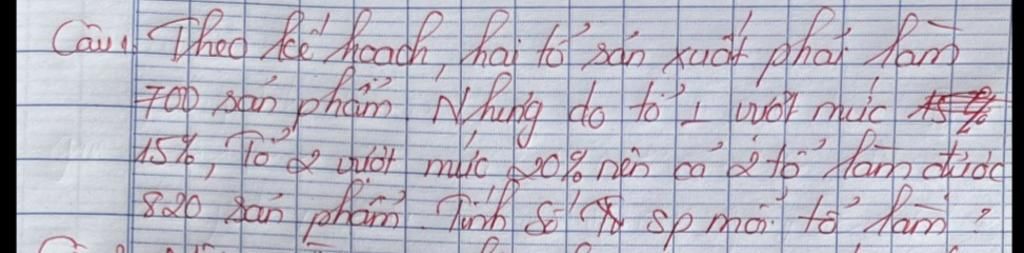 Câu 1 Theo kế hoạch, hai tổ sản xuất phải làm
700 sản phẩm. Nhưng do tổ 1 vượt mức
15%, Tổ 2 vượt mức 20% nên cả 2 tổ làm được
820 sản phẩm. Tính số sp mỗi tổ làm?